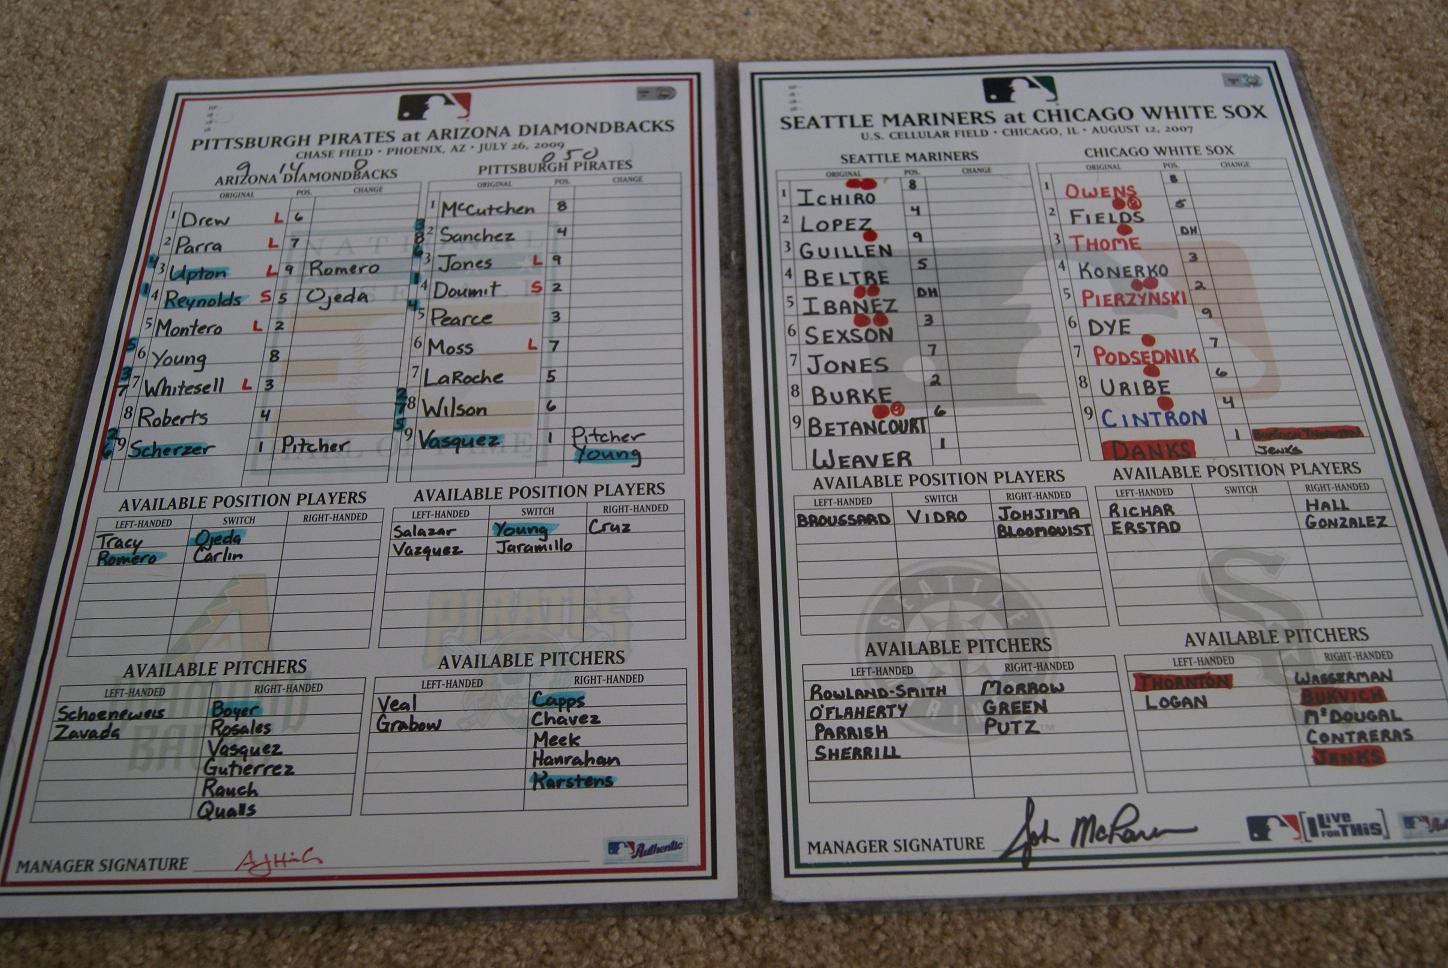 PITTSBURGH PIRATES at ARIZONA DIAMONDBACKS
CHASE FIELD • PHOENIX, AZ • JULY 26, 2009
9 14 0
ARIZONA DIAMONDBACKS
ORIGINAL POS. CHANGE
1 Drew L 6
2 Parra L 7
3 Upton L 9 Romero
4 Reynolds S 5 Ojeda
5 Montero L 2
6 Young 8
7 Whitesell L 3
8 Roberts 4
9 Scherzer 1 Pitcher
0 5 0
PITTSBURGH PIRATES
ORIGINAL POS. CHANGE
1 McCutchen 8
2 Sanchez 4
3 Jones L 9
4 Doumit S 2
5 Pearce 3
6 Moss L 7
7 LaRoche 5
8 Wilson 6
9 Vasquez 1 Pitcher
Young
AVAILABLE POSITION PLAYERS
LEFT-HANDED SWITCH RIGHT-HANDED
Tracy Ojeda
Romero Carlin
AVAILABLE POSITION PLAYERS
LEFT-HANDED SWITCH RIGHT-HANDED
Salazar Young Cruz
Vazquez Jaramillo
AVAILABLE PITCHERS
LEFT-HANDED RIGHT-HANDED
Schoeneweis Boyer
Zavada Rosales
Vasquez
Gutierrez
Rauch
Qualls
AVAILABLE PITCHERS
LEFT-HANDED RIGHT-HANDED
Veal Capps
Grabow Chavez
Meek
Hanrahan
Karstens
MANAGER SIGNATURE
Authentic
SEATTLE MARINERS at CHICAGO WHITE SOX
U.S. CELLULAR FIELD • CHICAGO, IL • AUGUST 12, 2007
SEATTLE MARINERS
ORIGINAL POS. CHANGE
1 ICHIRO 8
2 LOPEZ 4
3 GUILLEN 9
4 BELTRE 5
5 IBANEZ DH
6 SEXSON 3
7 JONES 7
8 BURKE 2
9 BETANCOURT 6
WEAVER 1
CHICAGO WHITE SOX
ORIGINAL POS. CHANGE
1 OWENS 8
2 FIELDS 5
3 THOME DH
4 KONERKO 3
5 PIERZYNSKI 2
6 DYE 9
7 PODSEDNIK 7
8 URIBE 6
9 CINTRON 4
DANKS 1
Jenks
AVAILABLE POSITION PLAYERS
LEFT-HANDED SWITCH RIGHT-HANDED
BROUSSARD VIDRO JOHJIMA
BLOOMQUIST
AVAILABLE POSITION PLAYERS
LEFT-HANDED SWITCH RIGHT-HANDED
RICHAR HALL
ERSTAD GONZALEZ
AVAILABLE PITCHERS
LEFT-HANDED RIGHT-HANDED
ROWLAND-SMITH MORROW
O'FLAHERTY GREEN
PARRISH PUTZ
SHERRILL
AVAILABLE PITCHERS
LEFT-HANDED RIGHT-HANDED
THORNTON WASSERMAN
LOGAN BUKVICH
McDOUGAL
CONTRERAS
JENKS
MANAGER SIGNATURE John McLaren
I LIVE FOR THIS